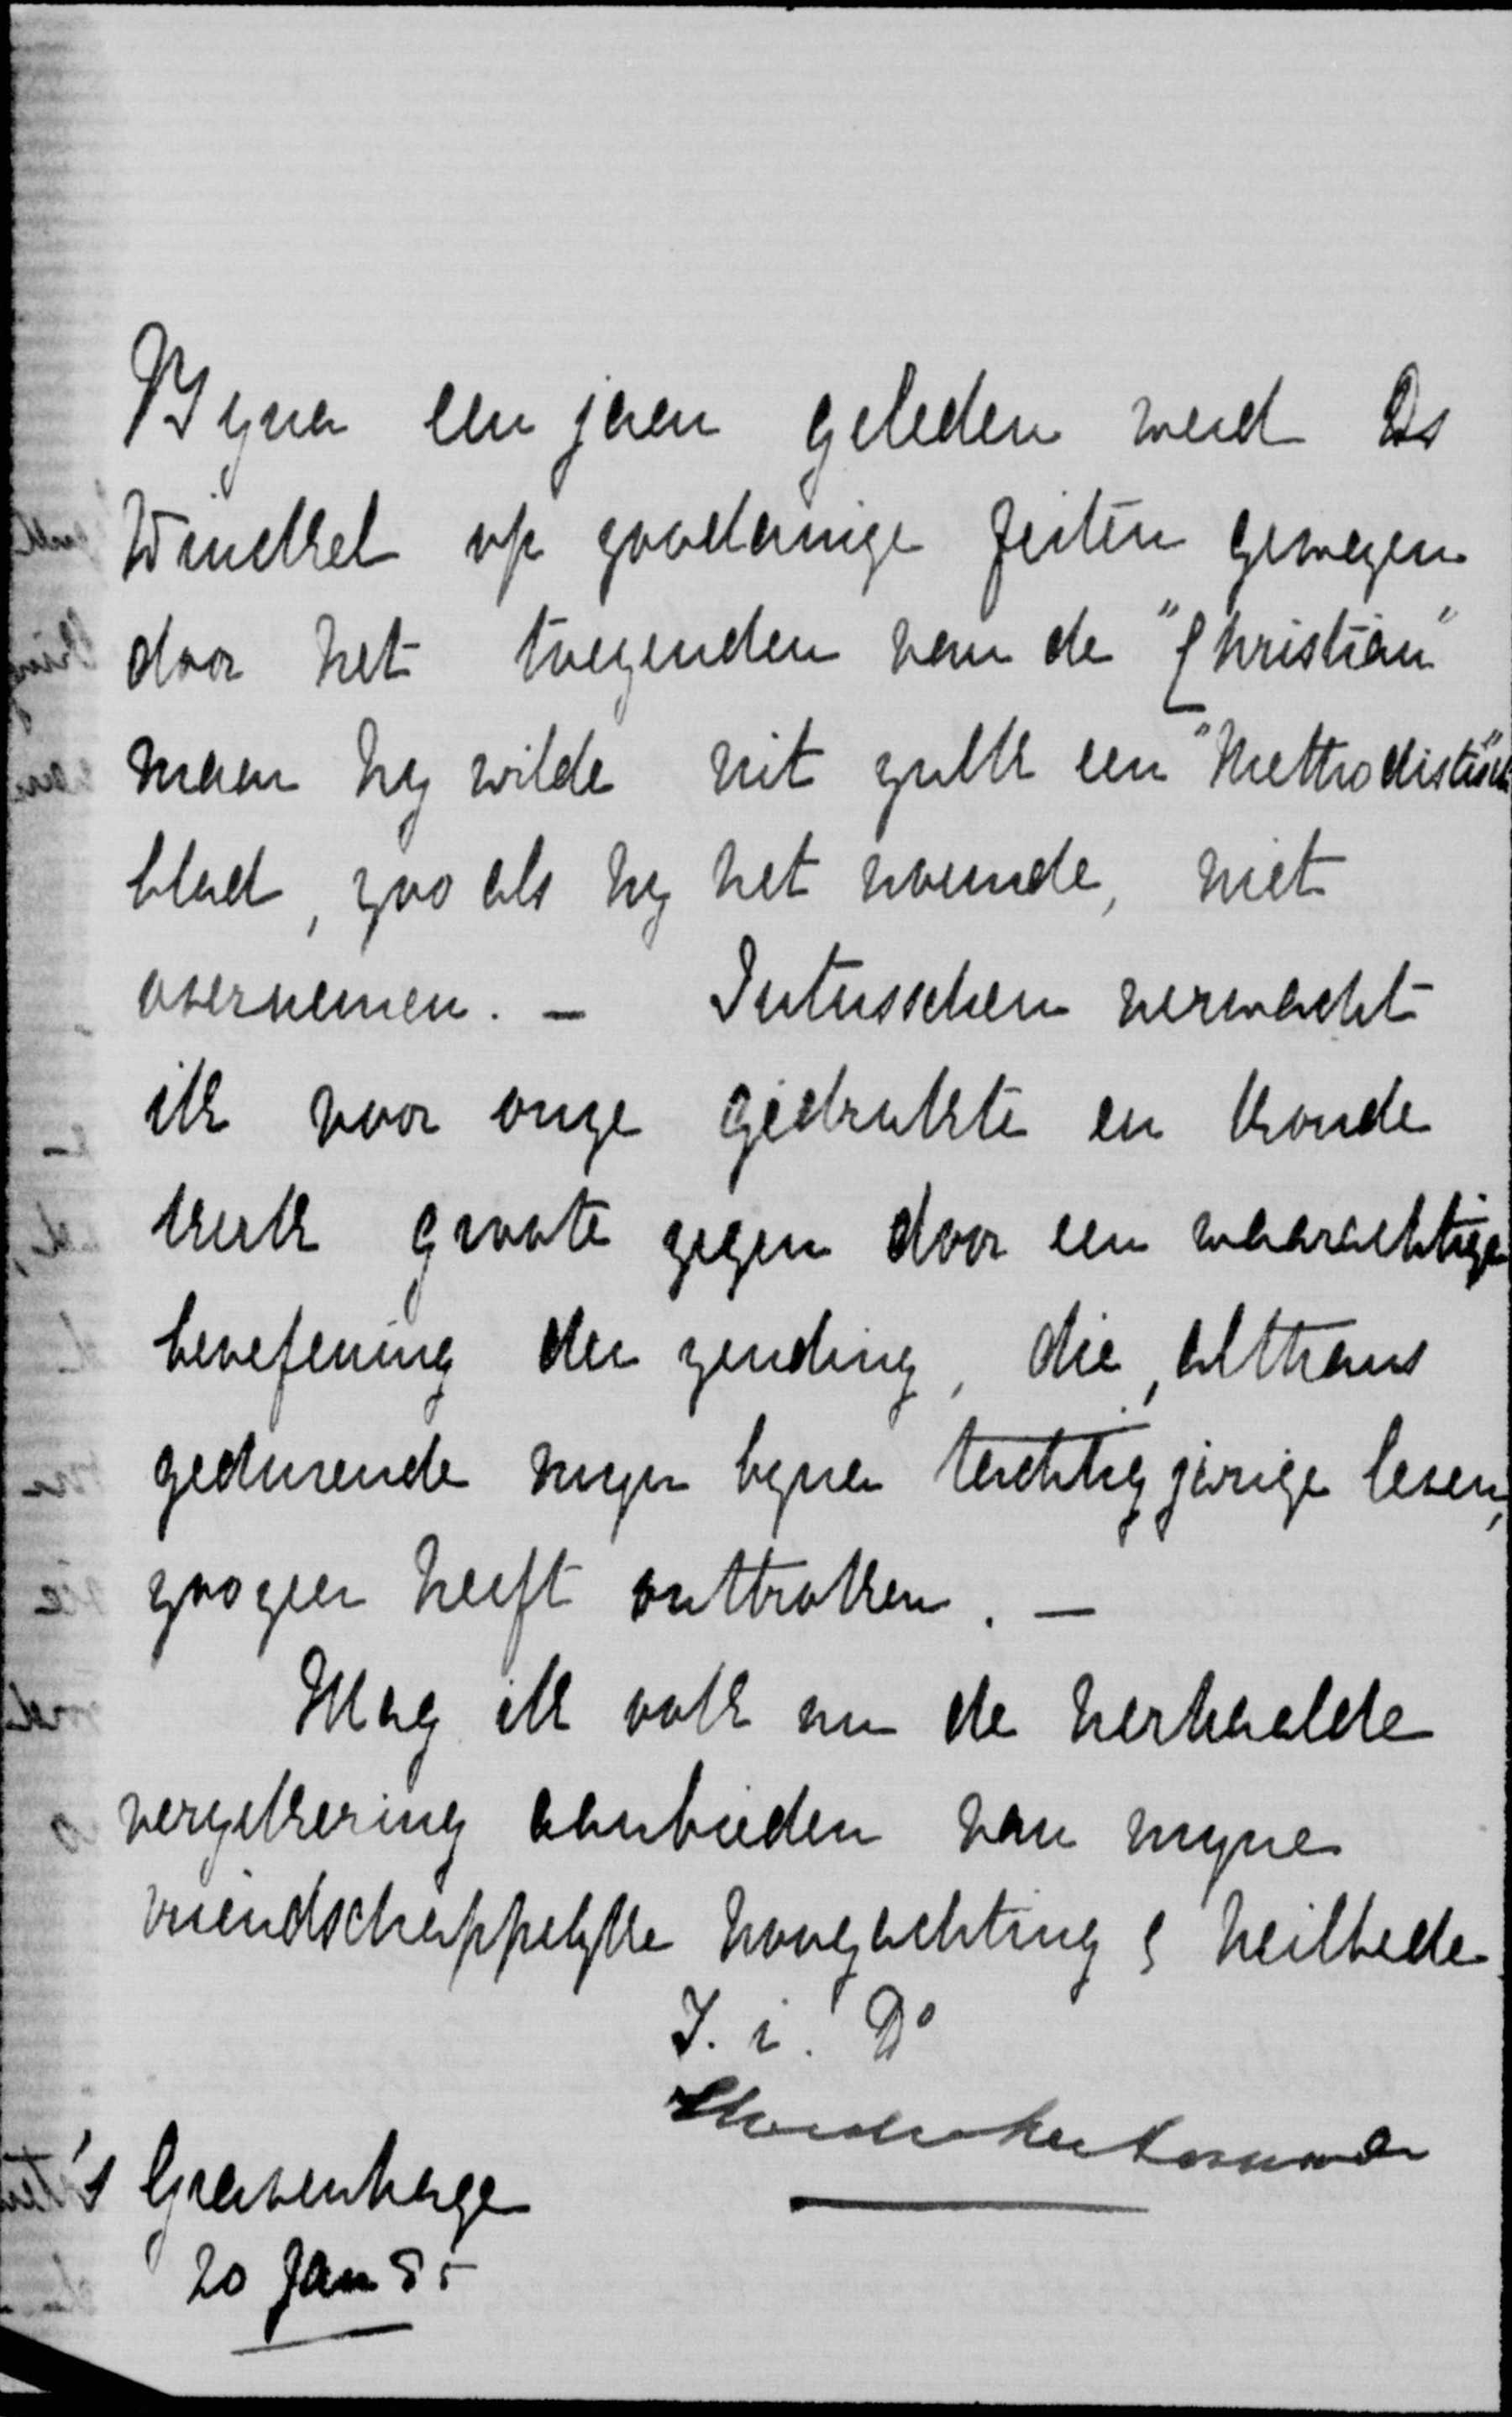 Byna een jaar geleden werd Ds
Winckel op zoodanige feiten gewezen
door het toezenden van de "Christian"
maar hy wilde uit zulk een "Methodistisch"
blad, zoo als hy het noemde, niet
overnemen. — Intusschen verwacht
ik voor onze gedrukte en koude
kerk groote zegen door een waarachtige
beoefening der zending, die, althans
gedurende myn byna tachtig jarige leven,
zoozeer heeft onttrokken. —
Mag ik ook nu de herhaalde
verzekering aanbieden van myne
vriendschappelyke hoogachting & heilbede
T. i. Do
's Gravenhage
20 Jan 85